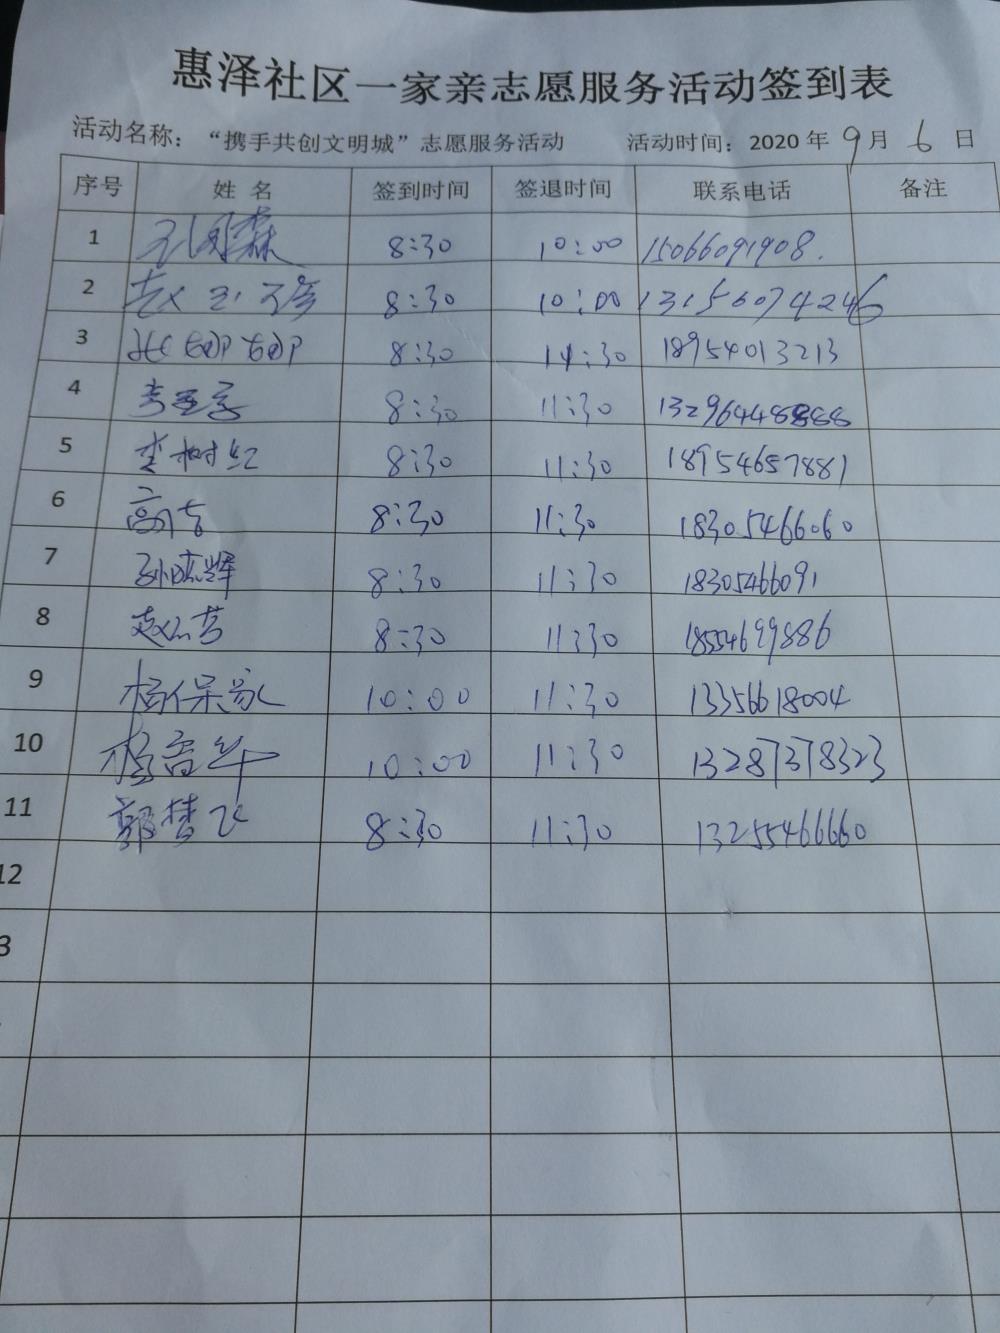 惠泽社区一家亲志愿服务活动签到表
活动名称：“携手共创文明城”志愿服务活动 活动时间：2020 年 9 月 6 日
序号 姓 名 签到时间 签退时间 联系电话 备注
1 8:30 10:00 15066091908.
2 赵 8:30 10:00 13156074246
3 8:30 11:30 18954013213
4 李 8:30 11:30 13296448888
5 李树红 8:30 11:30 18954657881
6 高 8:30 11:30 18305466060
7 孙晓辉 8:30 11:30 18305466091
8 赵 8:30 11:30 18554699886
9 杨保家 10:00 11:30 13356618004
10 杨 华 10:00 11:30 13287378323
11 郭梦飞 8:30 11:30 13255466660
12
3